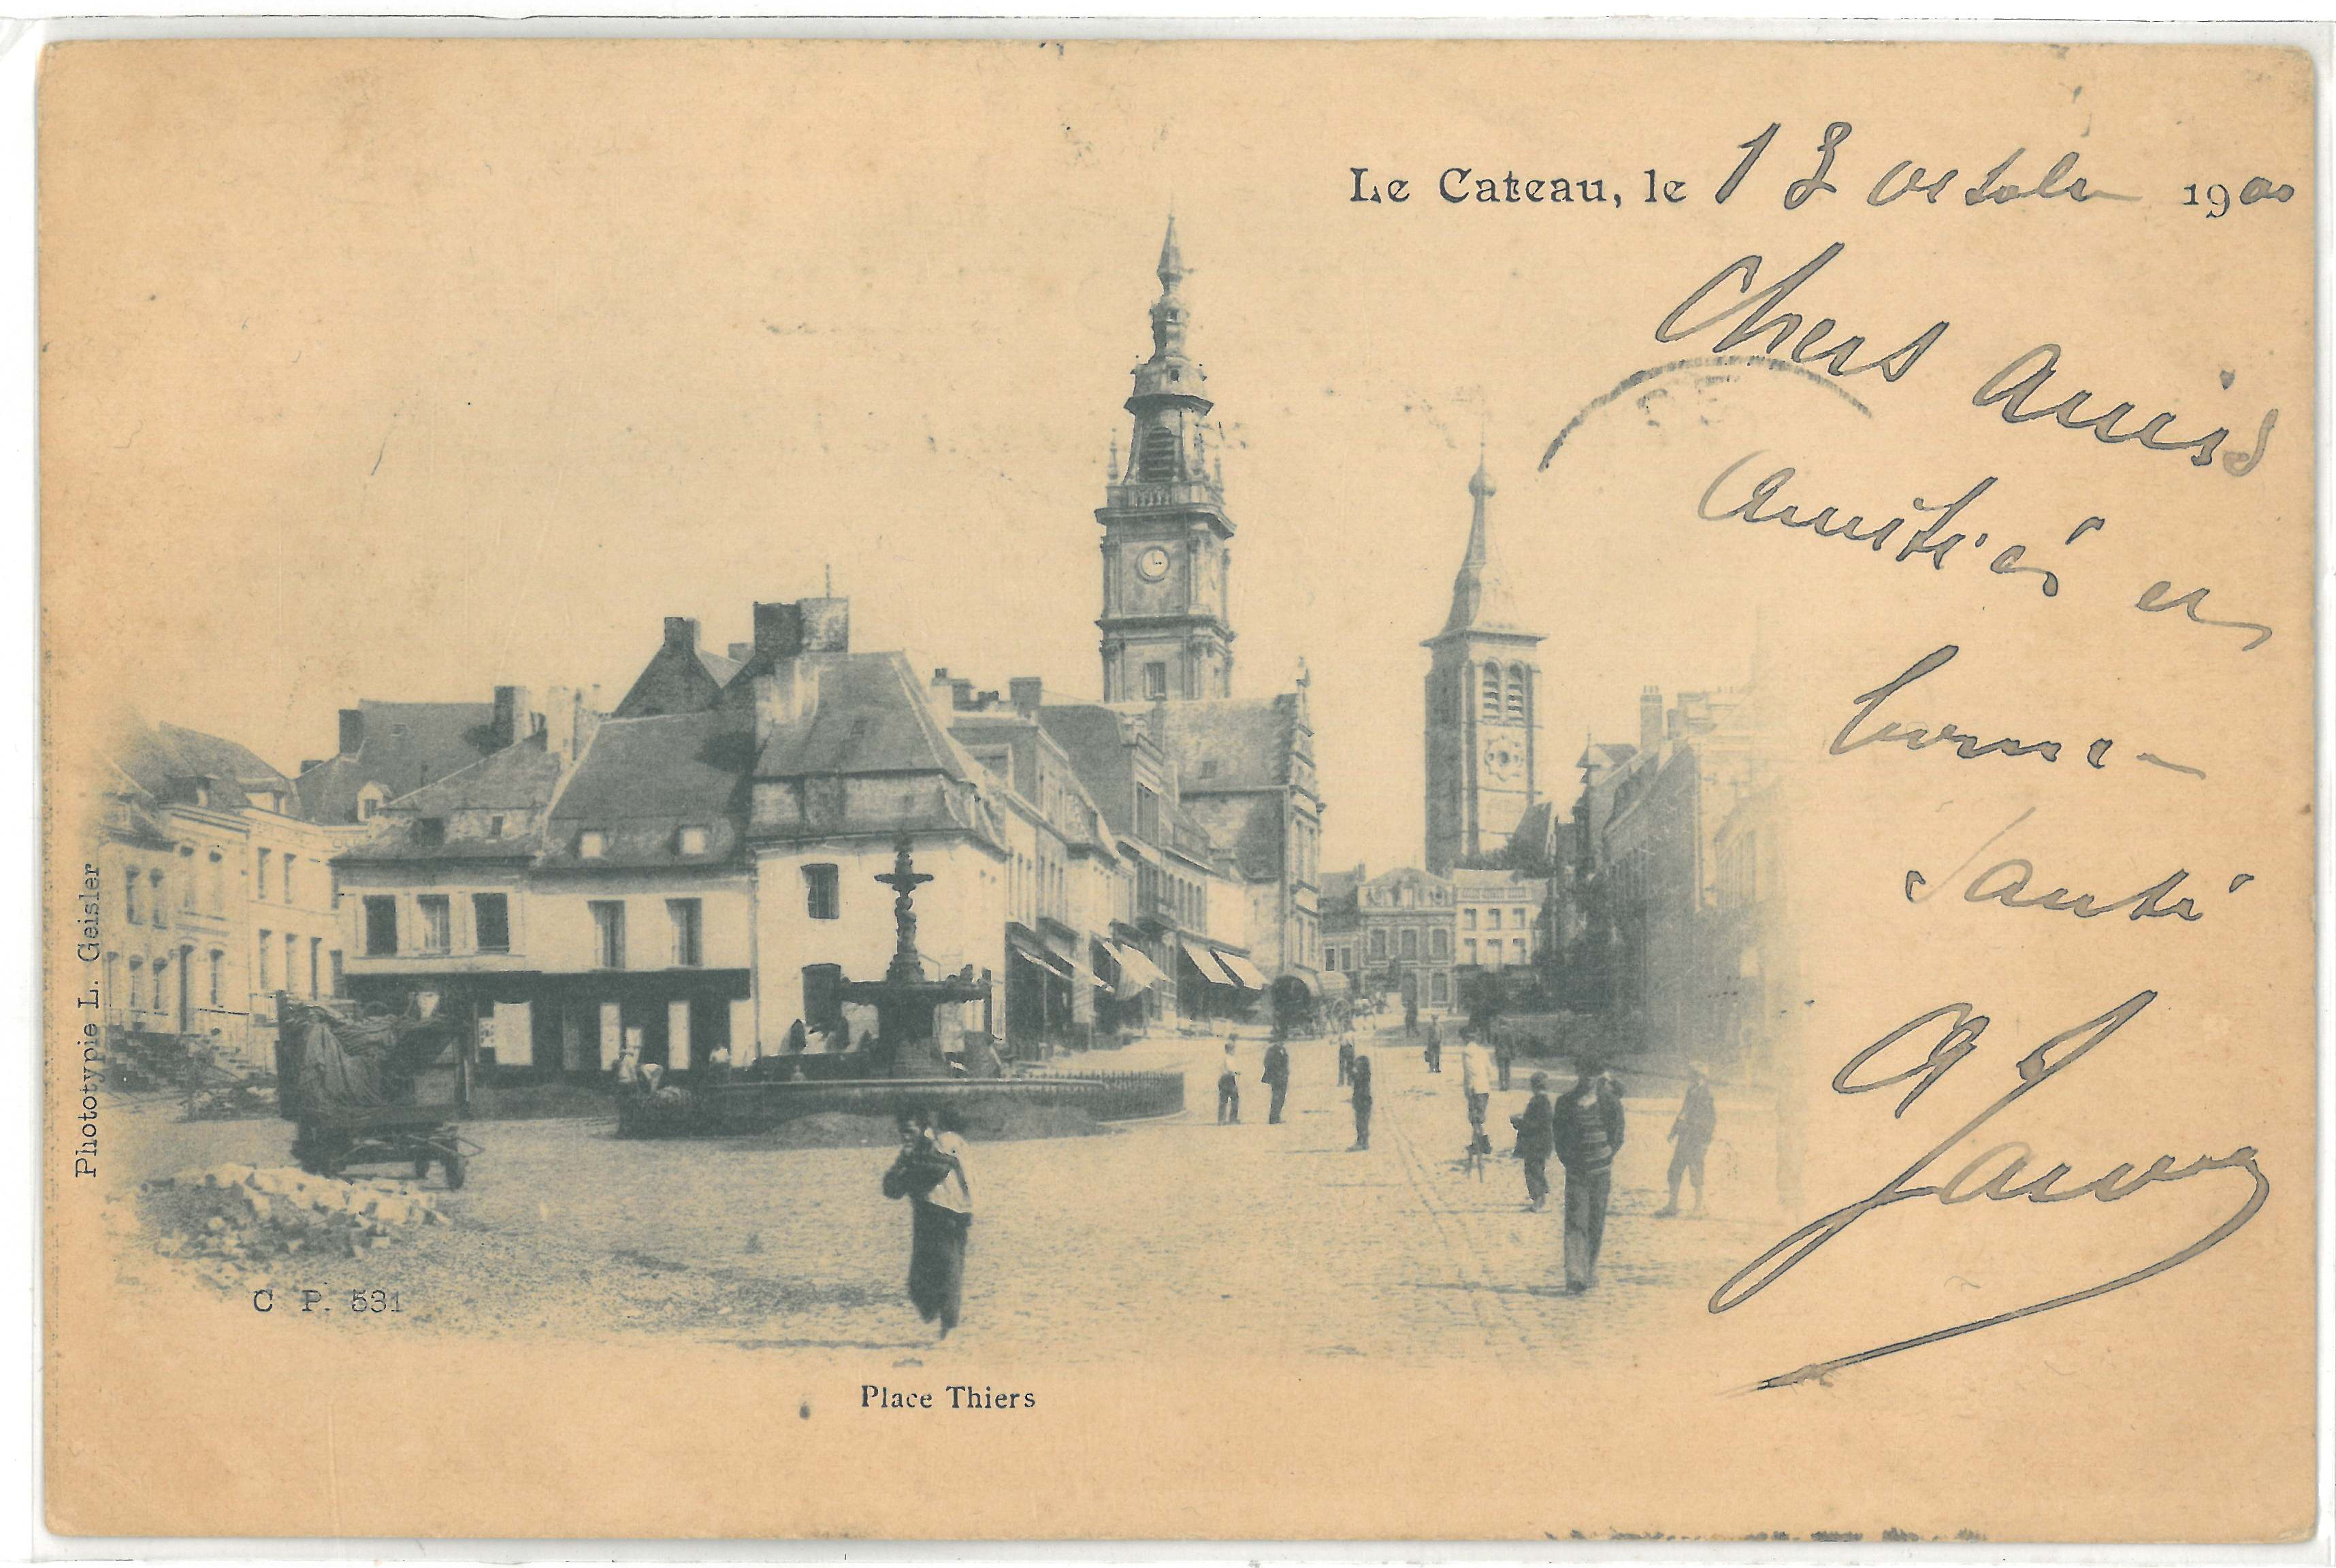 Le Cateau, le 13 octobre 1900
Chers Amis
Amitiés et
bonne
Santé
Phototypie L. Geisler
C P. 531
Place Thiers